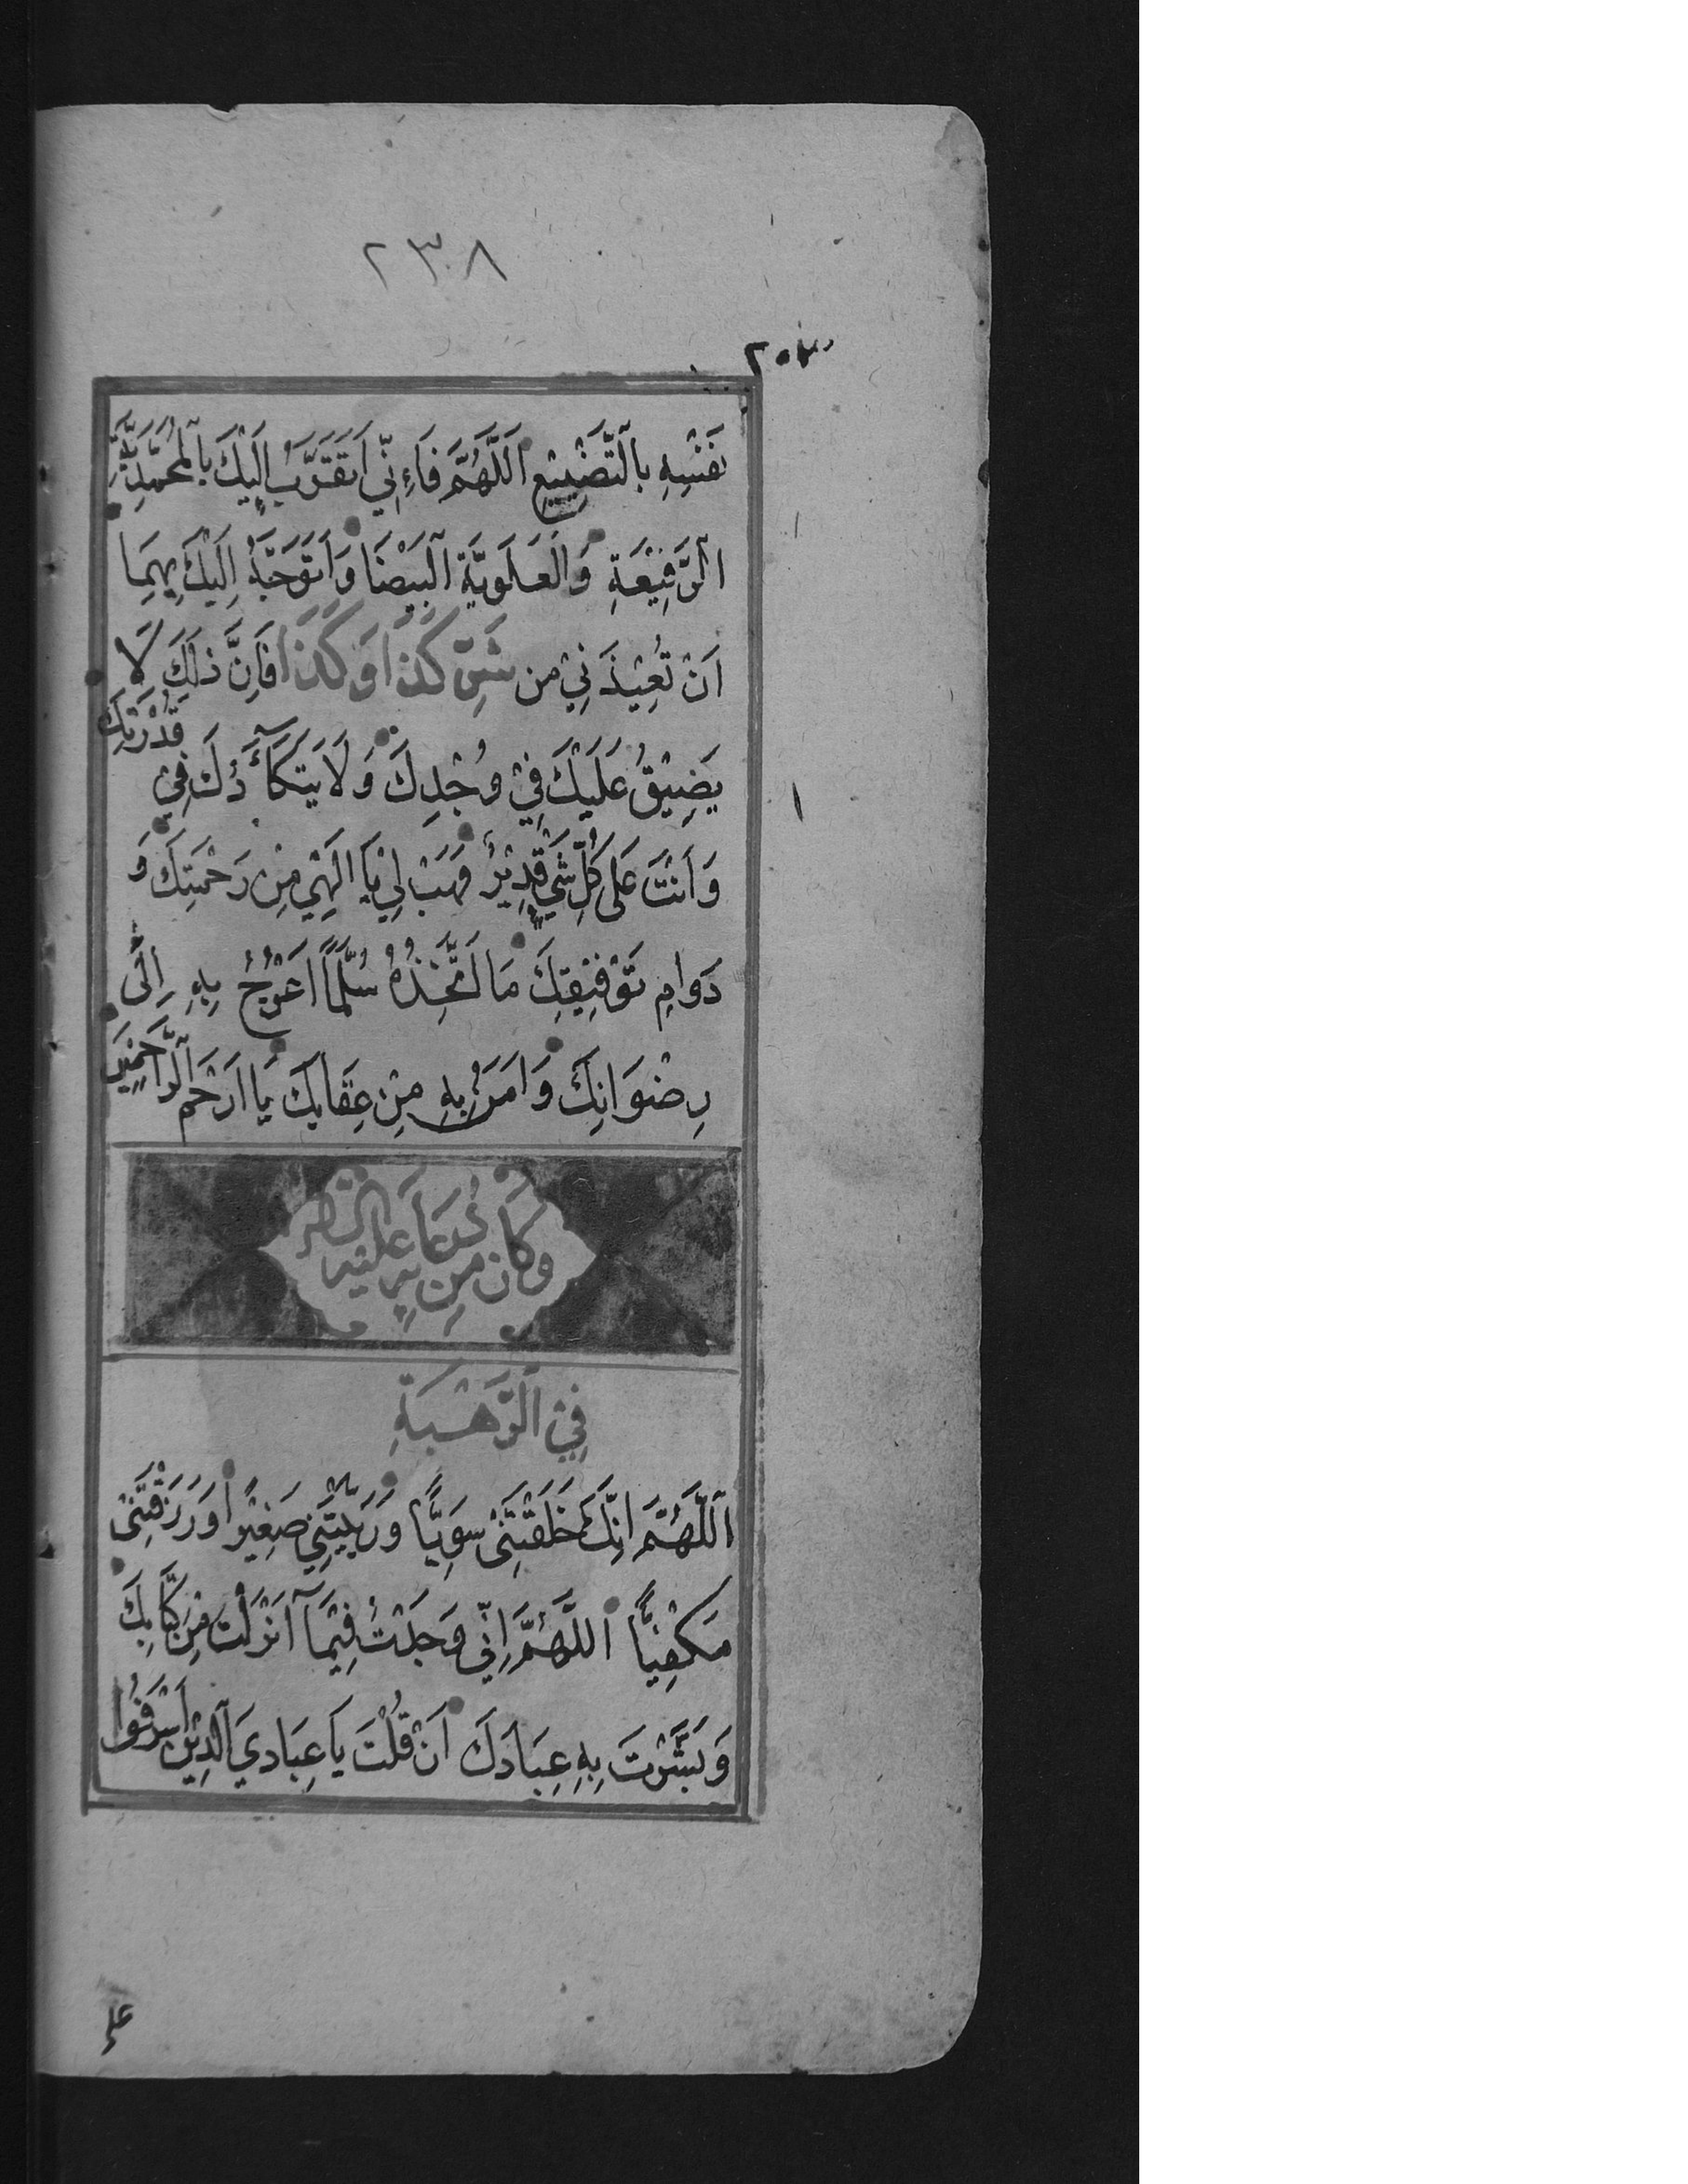 ٢٣٨
نَفْسِهِ بِالتَّضْيِيْعِ اَللَّهُمَّ فَاءِنِّي اَتَقَرَّبُ اِلَيْكَ بِالْمُحَمَّدِيَّةِ
الرَّفِيْعَةِ وَالْعَلَوِيَّةِ الْبَيْضَا وَاَتَوَجَّهُ اِلَيْكَ بِهِمَا
اَنْ تُعِيْذَنِيْ مِن شَرِّ كَذَا وَكَذَا فَاِنَّ ذٰلِكَ لَا
يَضِيْقُ عَلَيْكَ فِيْ وُجْدِكَ وَلَا يَتَكَأَّدُكَ فِيْ قُدْرَتِكَ
وَاَنْتَ عَلَى كُلِّ شَيٍ قَدِيْرٌ فَهَبْ لِيْ يَا اِلَهِيْ مِنْ رَحْمَتِكَ وَ
دَوَامِ تَوْفِيْقِكَ مَا اَتَّخِذُهُ سُلَّمًا اَعْرُجُ بِهِ اِلَى
رِضْوَانِكَ وَاٰمَنُ بِهِ مِنْ عِقَابِكَ يَا اَرْحَمَ الرَّاحِمِيْنَ
وَكَانَ مِنْ دُعَائِهِ عَلَيْهِ
فِيْ الرَّهْبَةِ
اَللَّهُمَّ اِنَّكَ خَلَقْتَنِىْ سَوِيًّا وَرَبَّيْتَنِيْ صَغِيْرًا وَرَزَقْتَنِىْ
مَكْفِيًّا اَللَّهُمَّ اِنِّيْ وَجَدْتُ فِيْمَا اَنْزَلْتَ مِنْ كِتَابِكَ
وَبَشَّرْتَ بِهِ عِبَادَكَ اَنْ قُلْتَ يَا عِبَادِيَ الَّذِيْنَ اَسْرَفُوا